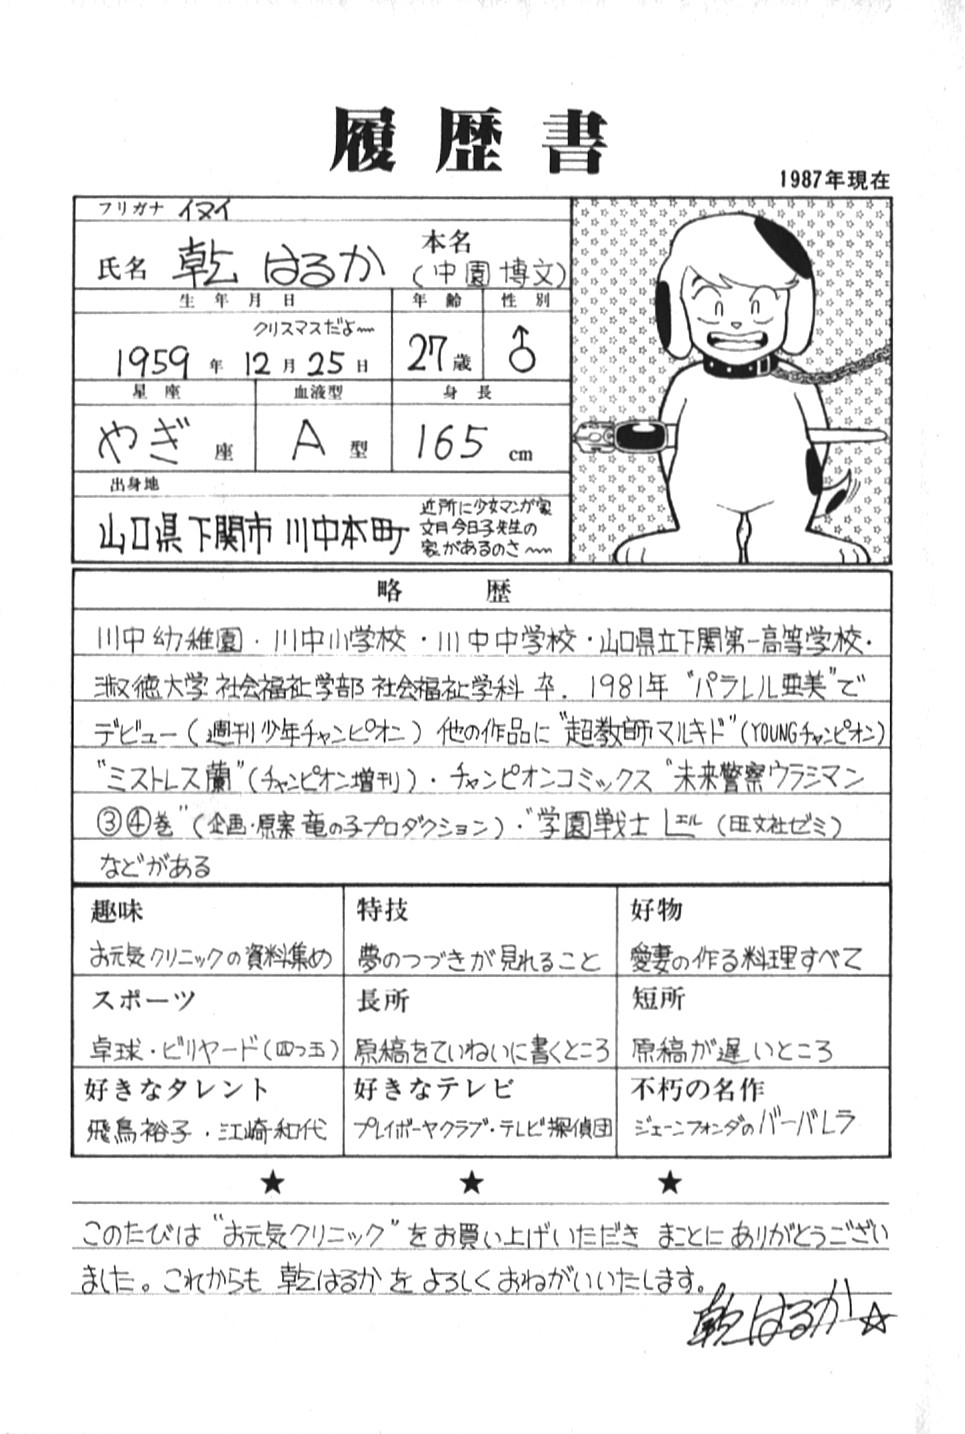 履歴書
1987年現在
フリガナ イヌイ
氏名 乾 はるか 本名
(中園 博文)
生年月日 年齢 性別
クリスマスだよ〜
1959年 12月 25日 27歳 ♂
星座 血液型 身長
やぎ座 A型 165cm
出身地
山口県下関市 川中本町
近所に少女マンガ家
文月今日子先生の
家があるのさ〜〜
略歴
川中幼稚園・川中小学校・川中中学校・山口県立下関第一高等学校・
淑徳大学 社会福祉学部 社会福祉学科 卒. 1981年 “パラレル亜美”で
デビュー(週刊少年チャンピオン) 他の作品に“超教師マルキド”(YOUNGチャンピオン)
“ミストレス蘭”(チャンピオン増刊)・チャンピオンコミックス “未来警察ウラシマン
③④巻”(企画・原案 竜の子プロダクション)・“学園戦士 L エル (旺文社ゼミ)
などがある
趣味 特技 好物
お元気クリニックの資料集め 夢のつづきが見れること 愛妻の作る料理すべて
スポーツ 長所 短所
卓球・ビリヤード(四つ玉) 原稿をていねいに書くところ 原稿が遅いところ
好きなタレント 好きなテレビ 不朽の名作
飛鳥裕子・江崎和代 プレイボーヤクラブ・テレビ探偵団 ジェーンフォンダのバーバレラ
★ ★ ★
このたびは“お元気クリニック”をお買い上げいただき まことにありがとうござい
ました。これからも 乾はるかを よろしくおねがいいたします。
乾はるか☆